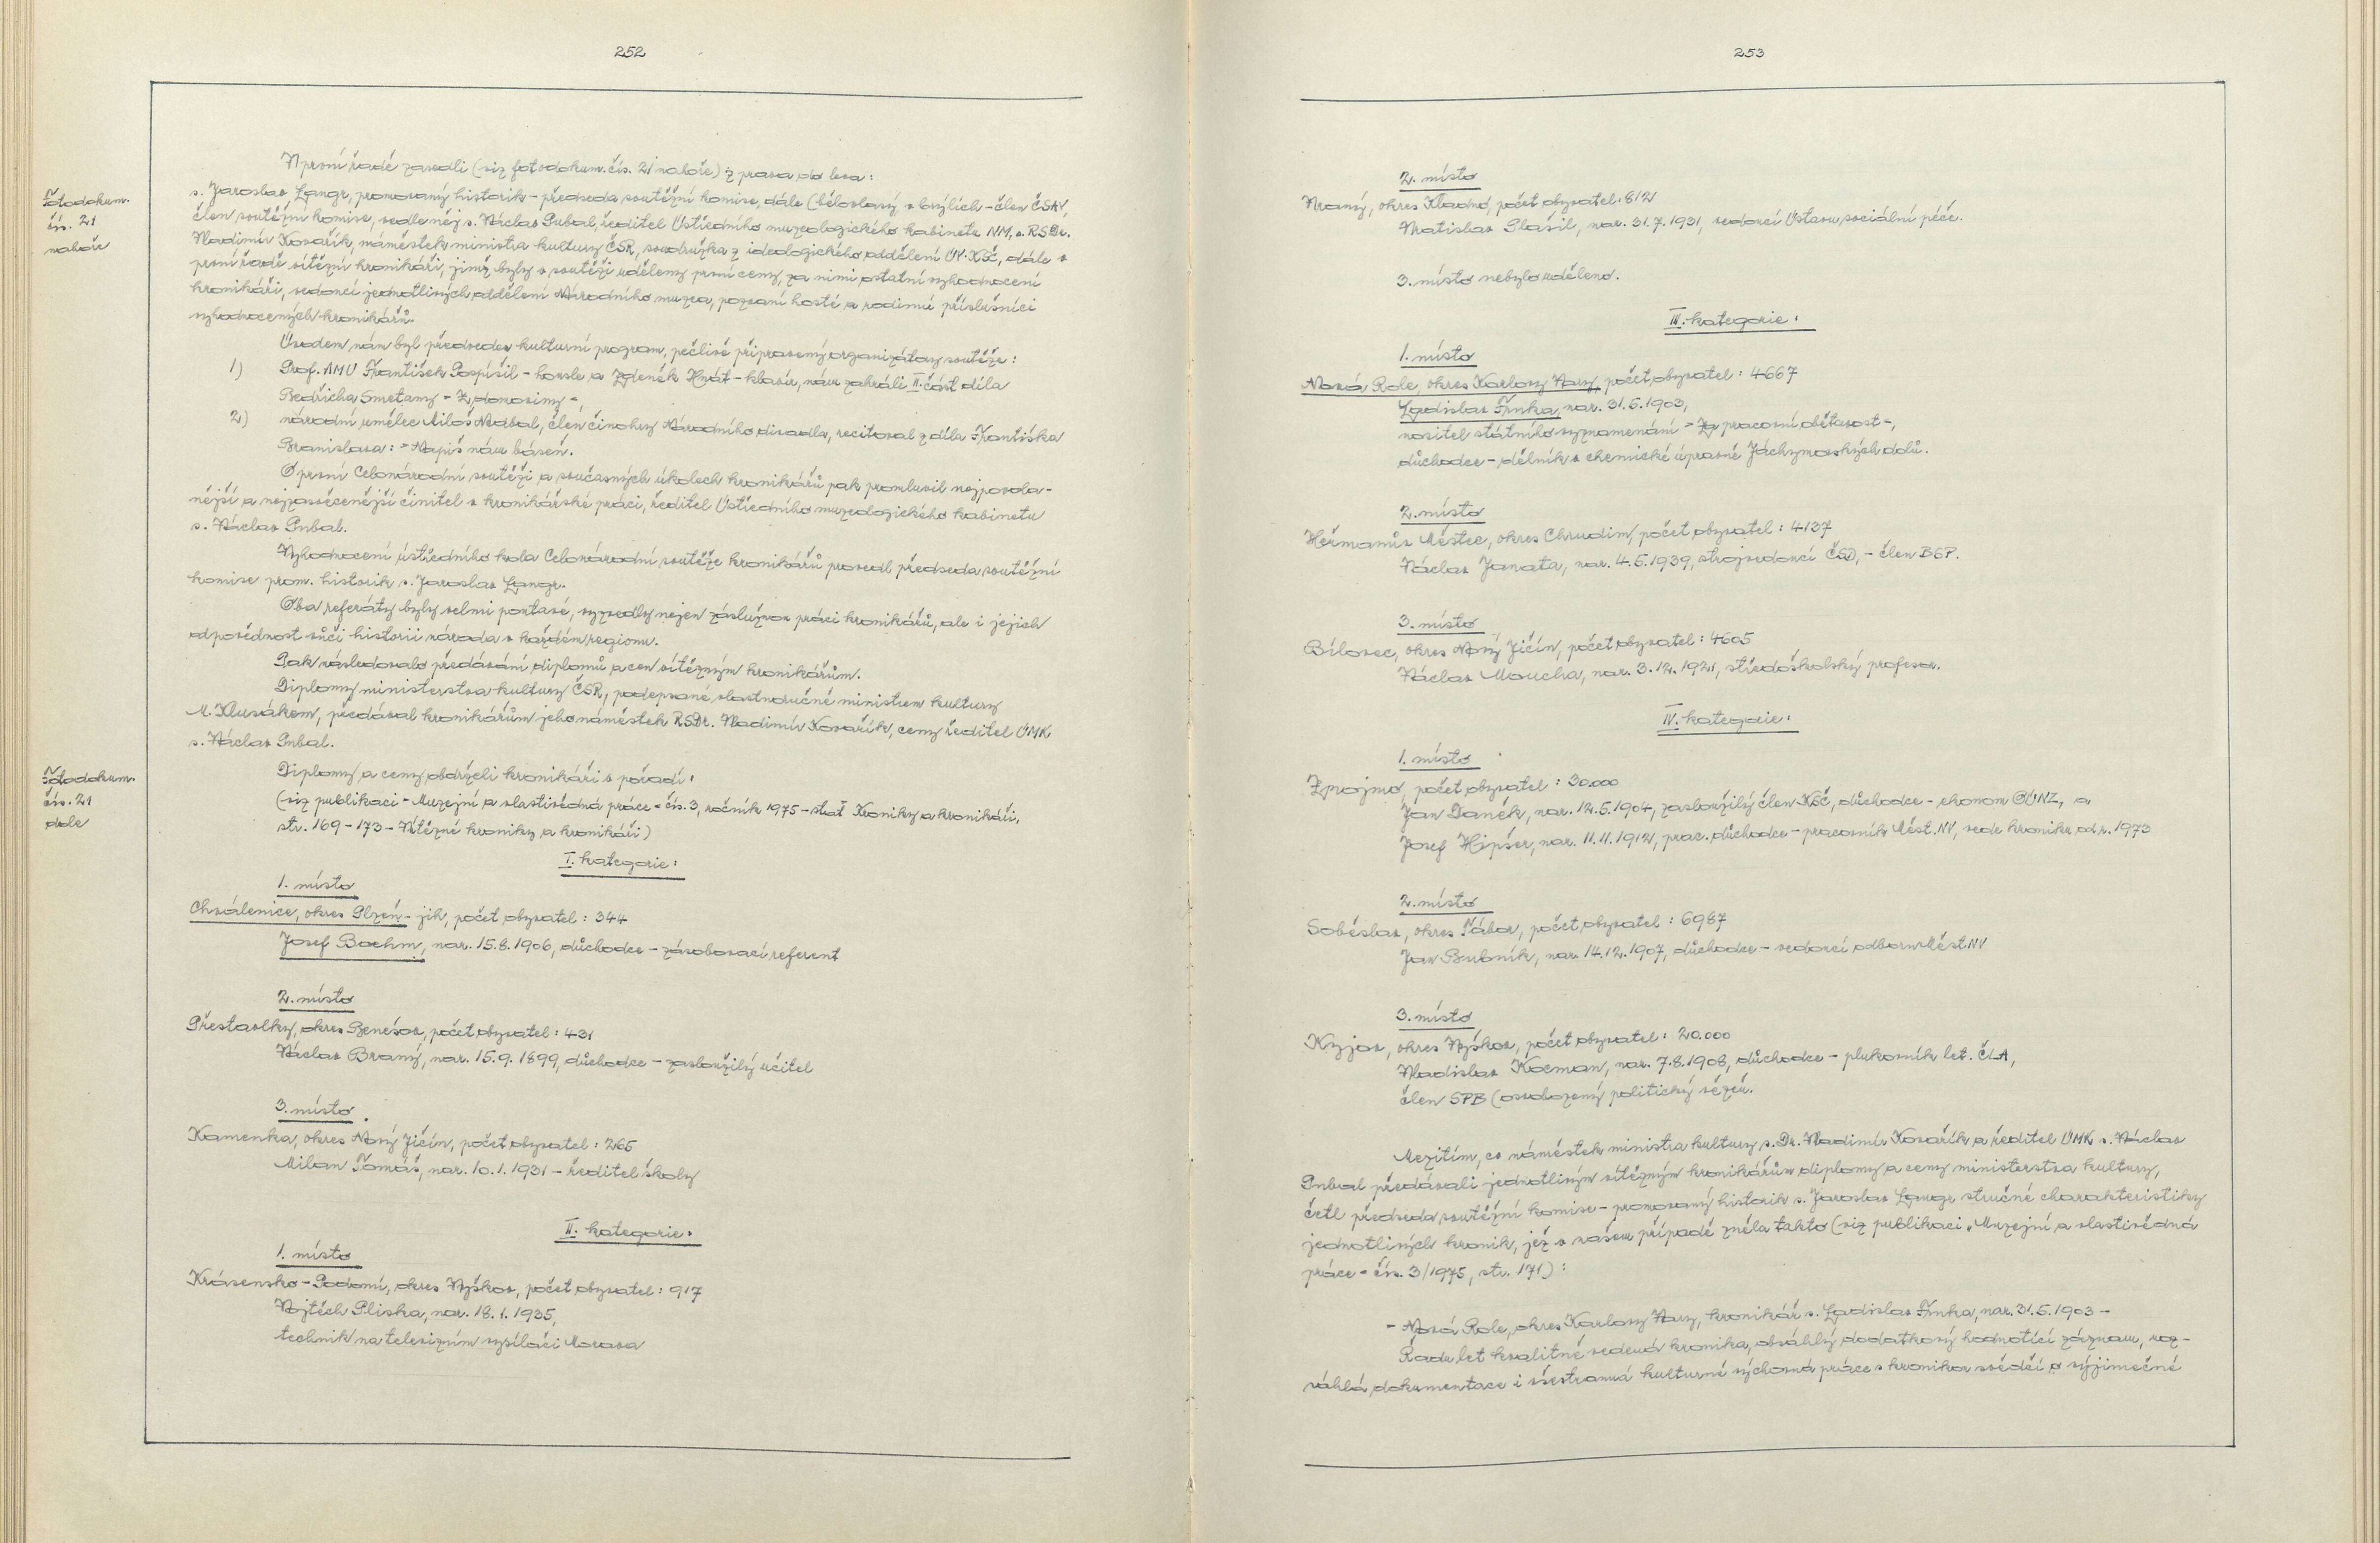 252
V první řadě zasedli (viz fotodokum. čís. 21 nahoře) z prava do leva:
Fotodokum.
čís. 21
nahoře
s. Jaroslav Langr, promovaný historik – předseda soutěžní komise, dále (bělovlasý v brýlích – člen ČSAV,
člen soutěžní komise, vedle něj s. Václav Pubal, ředitel Ústředního muzeologického kabinetu NM, s. RSDr.
Vladimír Kovařík, náměstek ministra kultury ČSR, soudružka z ideologického oddělení ÚV-KSČ, dále v
první řadě vítězní kronikáři, jimž byly v soutěži uděleny první ceny, za nimi ostatní vyhodnocení
kronikáři, vedoucí jednotlivých oddělení Národního muzea, pozvaní hosté a rodinní příslušníci
vyhodnocených kronikářů.
Úvodem nám byl předveden kulturní program, pečlivě připravený organizátory soutěže:
1) Prof. AMU František Pospíšil – housle a Zdeněk Hnát – klavír, nám zahráli II. část díla
Bedřicha Smetany "Z domoviny",
2) národní umělec Miloš Nedbal, člen činohry Národního divadla, recitoval z díla Františka
Branislava: "Napiš nám báseň.
O první Celonárodní soutěži a současných úkolech kronikářů pak promluvil nejpovola-
nější a nejzasvěcenější činitel v kronikářské práci, ředitel Ústředního muzeologického kabinetu
s. Václav Pubal.
Vyhodnocení ústředního kola Celonárodní soutěže kronikářů provedl předseda soutěžní
komise prom. historik s. Jaroslav Langr.
Oba referáty byly velmi poutavé, vyzvedly nejen záslužnou práci kronikářů, ale i jejich
odpovědnost vůči historii národa v každém regionu.
Pak následovalo předávání diplomů a cen vítězným kronikářům.
Diplomy ministerstva kultury ČSR, podepsané vlastnoručně ministrem kultury
M. Klusákem, předával kronikářům jeho náměstek RSDr. Vladimír Kovařík, ceny ředitel ÚMK
s. Václav Pubal.
Fotodokum.
čís. 21
dole
Diplomy a ceny obdrželi kronikáři v pořadí:
(viz publikaci "Muzejní a vlastivědná práce" čís. 3, ročník 1975 – stať Kroniky a kronikáři,
str. 169 – 173 – Vítězné kroniky a kronikáři)
I. kategorie:
1. místo
Chválenice, okres Plzeň – jih, počet obyvatel: 344
Josef Boehm, nar. 15.8.1906, důchodce – zásobovací referent
2. místo
Přestavlky, okres Benešov, počet obyvatel: 431
Václav Braný, nar. 15.9.1899, důchodce – zasloužilý učitel
3. místo
Kamenka, okres Nový Jičín, počet obyvatel: 265
Milan Tomáš, nar. 10.1.1931 – ředitel školy
II. kategorie:
1. místo
Krásensko – Podomí, okres Vyškov, počet obyvatel: 917
Vojtěch Pliska, nar. 18.1.1935,
technik na televizním vysílači Morava
253
2. místo
Vraný, okres Kladno, počet obyvatel: 812
Vratislav Plašil, nar. 31.7.1931, vedoucí Ústavu sociální péče.
3. místo nebylo uděleno.
III. kategorie:
1. místo
Nová Role, okres Karlovy Vary, počet obyvatel: 4667
Ladislav Trnka, nar. 31.5.1903,
nositel státního vyznamenání "Za pracovní obětavost",
důchodce – dělník v chemické úpravně Jáchymovských dolů.
2. místo
Heřmanův Městec, okres Chrudim, počet obyvatel: 4137
Václav Janata, nar. 4.5.1939, strojvedoucí ČSD, – člen BSP.
3. místo
Bílovec, okres Nový Jičín, počet obyvatel: 4605
Václav Moucha, nar. 3.12.1921, středoškolský profesor.
IV. kategorie:
1. místo
Znojmo, počet obyvatel: 30.000
Jan Daněk, nar. 12.5.1904, zasloužilý člen KSČ, důchodce – ekonom OÚNZ, a
Josef Hipšer, nar. 11.11.1912, prac. důchodce – pracovník Měst. NV, vede kroniku od r. 1973
2. místo
Soběslav, okres Tábor, počet obyvatel: 6987
Jan Bubník, nar. 14.12.1907, důchodce – vedoucí odboru Měst NV
3. místo
Kyjov, okres Vyškov, počet obyvatel: 20.000
Vladislav Kocman, nar. 7.8.1908, důchodce – plukovník let. ČLA,
člen SPB (osvobozený politický vězeň.
Mezitím, co náměstek ministra kultury s. Dr. Vladimír Kovařík a ředitel ÚMK s. Václav
Pubal předávali jednotlivým vítězným kronikářům diplomy a ceny ministerstva kultury,
četl předseda soutěžní komise – promovaný historik s. Jaroslav Langr stručné charakteristiky
jednotlivých kronik, jež v našem případě zněla takto (viz publikaci "Muzejní a vlastivědná
práce" čís. 3/1975, str. 171):
"Nová Role, okres Karlovy Vary, kronikář s. Ladislav Trnka, nar. 31.5.1903 –
Řadu let kvalitně vedená kronika, obsáhlý dodatkový hodnotící záznam, roz-
sáhlá dokumentace i všestranná kulturně výchovná práce s kronikou svědčí o výjimečné